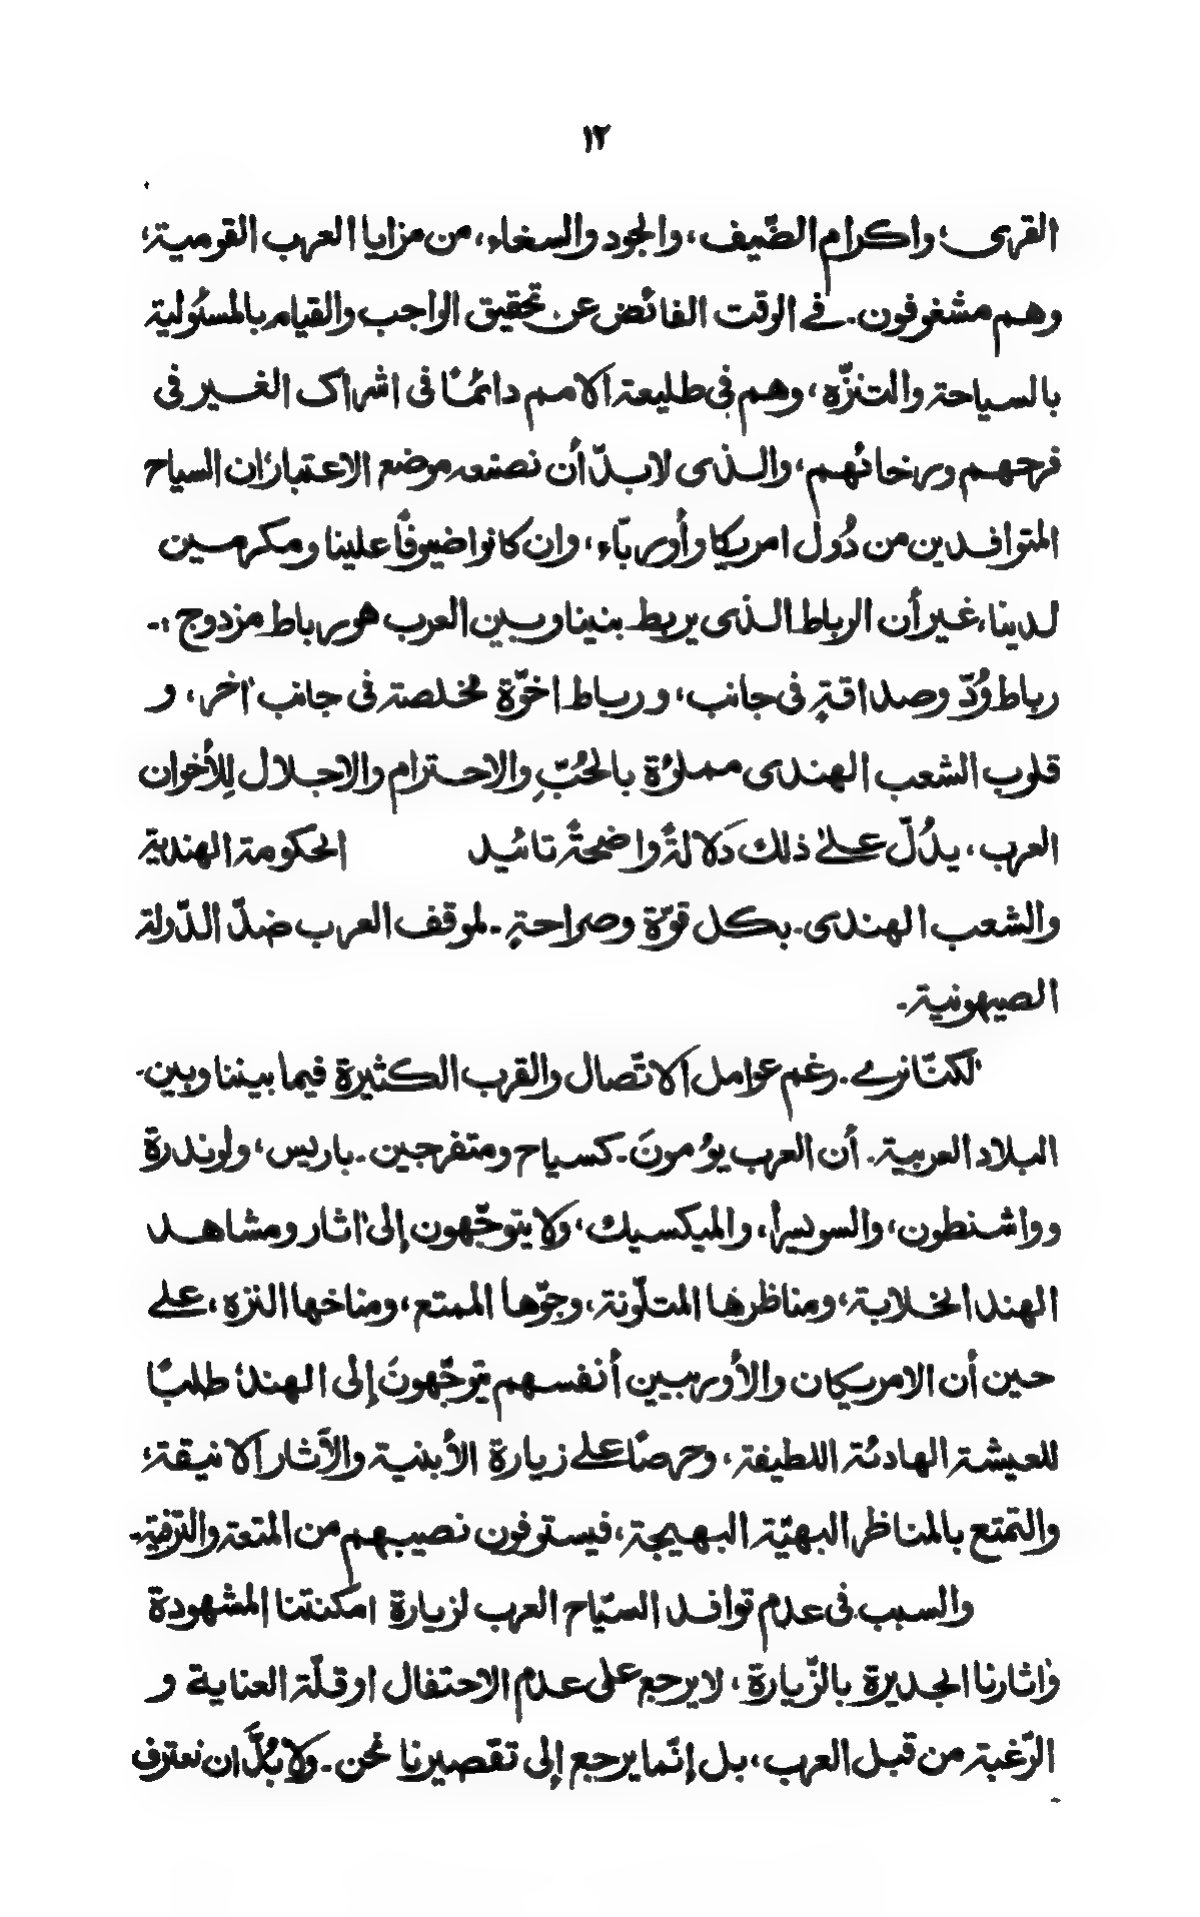 ١٢
القرى، واكرام الضّيف، والجود والسخاء، من مزايا العرب القومية،
وهم مشغوفون۔ في الوقت الفائض عن تحقيق الواجب والقيام بالمسئولية
بالسياحة والتنزّه، وهم في طليعة الامم دائمًا في اشراك الغير في
فرحهم ورخائهم، والذى لابدّ أن نضعه موضع الاعتبار، ان السياح
المتوافدين من دُول امريكا وأورباّء، وان كانوا ضيوفًا علينا ومكرمين
لدينا، غير أن الرباط الذى يربط بيننا وبين العرب هو رباط مزدوج :-
رباط وُدّ وصداقةٍ في جانب، ورباط اخوّة مخلصة في جانب اٰخر، و
قلوب الشعب الهندى مملوُة بالحُبِّ والاحترام والاجلال لِلأخوان
العرب، يدُلّ علىٰ ذلك دَلالةً واضحةً تائيد الحكومة الهندية
والشعب الهندى۔ بكل قوّة وصراحةٍ۔ لموقف العرب ضدّ الدّولة
الصيهونية۔
لٰكنّا نرے۔ رغم عوامل الاتّصال والقرب الكثيرة فيما بيننا وبين۔
البلاد العربية۔ أن العرب يؤمونَ۔ كسياح ومتفرجين۔ باريس، ولوندرة
وواشنطون، والسويسرا، والميكسيك، ولا يتوجّهون إلى اٰثار ومشاهد
الهند الخلابة، ومناظرها المتلّونة، وجوّها الممتع، ومناخها النزه، على
حين أن الامريكان والأوربيين أنفسهم يتوجّهونَ إلى الهند، طلبًا
للعيشة الهادئة اللطيفة، وحرصًا على زيارة الأبنية والآثار الانيقة،
والتمتع بالمناظر البهيّة البهيجة، فيستوفون نصيبهم من المتعة والترفية۔
والسبب في عدم توافد السيّاح العرب لزيارة امكنتنا المشهودة
واٰثارنا الجديرة بالزّيارة، لا يرجع على عدم الاحتفال او قلّة العناية و
الرّغبة من قبل العرب، بل إنّما يرجع إلى تقصيرنا نحن۔ ولا بُدَّ ان نعترف